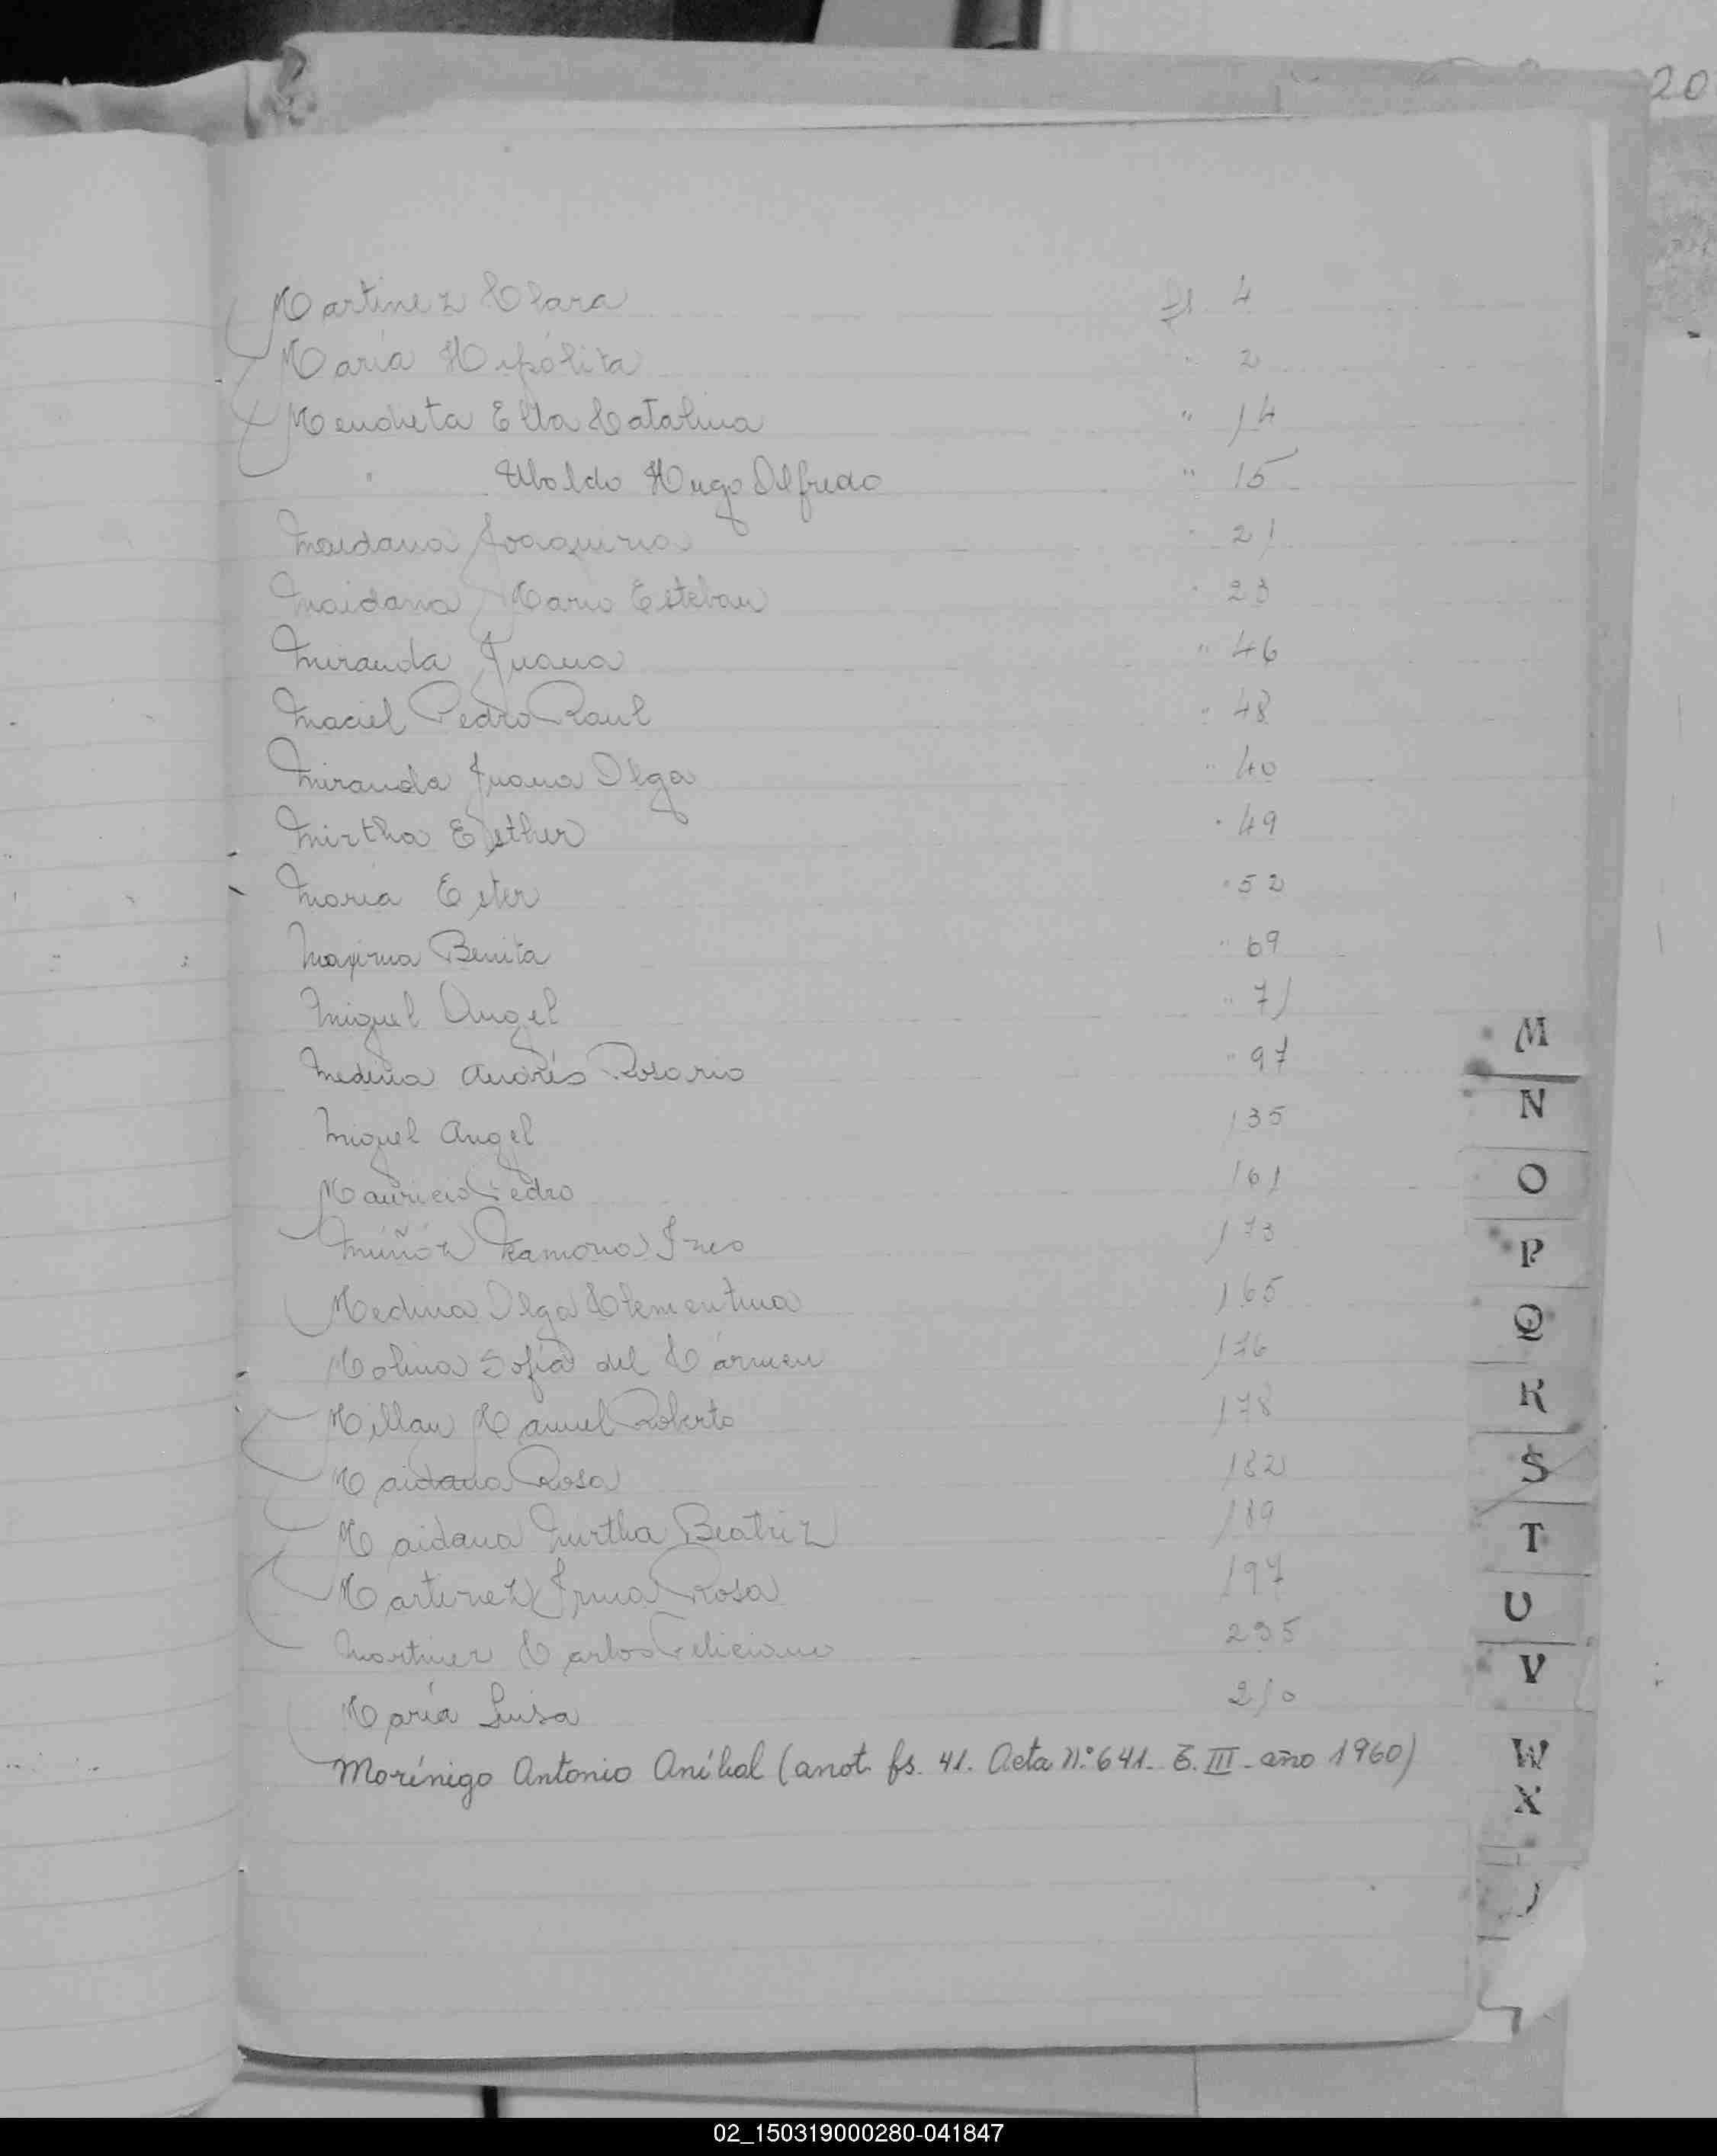 20
Martinez Clara fs 4
María Hipólita " 2
Mendieta Elba Catalina " 14
" Ubaldo Hugo Alfredo " 15
Maidana Joaquina " 21
Maidana Mario Esteban " 23
Miranda Juana " 46
Maciel Pedro Raul " 48
Miranda Juana Olga " 40
Mirtha Esther " 49
María Ester " 52
Maxima Benita " 69
Miguel Angel " 71
Medina Andrés Rosario " 97
Miguel Angel 135
Mauricio Pedro 161
Muñóz Ramona Ines 173
Medina Olga Clementina 165
Molina Sofía del Cármen 176
Millan Manuel Roberto 178
Maidana Rosa 182
Maidana Mirtha Beatriz 189
Martinez Irma Rosa 197
Martinez Carlos Feliciano
María Luisa 210
Morínigo Antonio Aníbal (anot. fs. 41. Acta n.º 641. T. III - año 1960)
M
N
O
P
Q
R
S
T
U
V
W
X
02_150319000280-041847